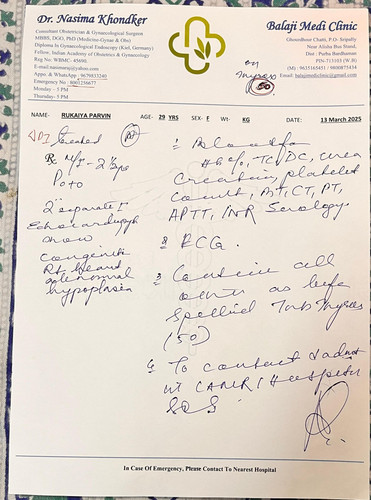 Dr. Nasima Khondker
Consultant Obstetrician & Gynaecological Surgeon
MBBS, DGO, PhD (Medicine-Gynae & Obs)
Diploma In Gynaecological Endoscopy (Kiel, Germany)
Fellow, Indian Academy of Obstetric & Gynaecology
Reg No. WBMC- 45690.
E-mail:nasimaraj@yahoo.com
Apps & WhatsApp : 9679833249
Emergency No : 8001256677
Monday - 5 PM
Thursday- 5 PM
Balaji Medi Clinic
Ghoradhour Chatti, P.O- Sripally
Near Alisha Bus Stand,
Dist : Purba Bardhaman
PIN-713103 (W.B)
(M) : 9635165451 / 9800873434
Email: balajimediclinic@gmail.com
on
50
NAME- RUKAIYA PARVIN AGE- 29 YRS SEX- F WT- KG DATE: 13 March 2025
treated
Rx
P0+0
2 separate
Echocardiograph
show
congenital
Rt. heart
hypoplasia
1 Blood for
Hb%, TC, DC, Urea
Creatinin, platelet
Count, BT, CT, PT,
APTT, INR Serology.
2 ECG.
3 Continue all
as before
Tab Thyrox
(50)
4 To contact & admit
Hospital
SOS.
In Case Of Emergency, Please Contact To Nearest Hospital